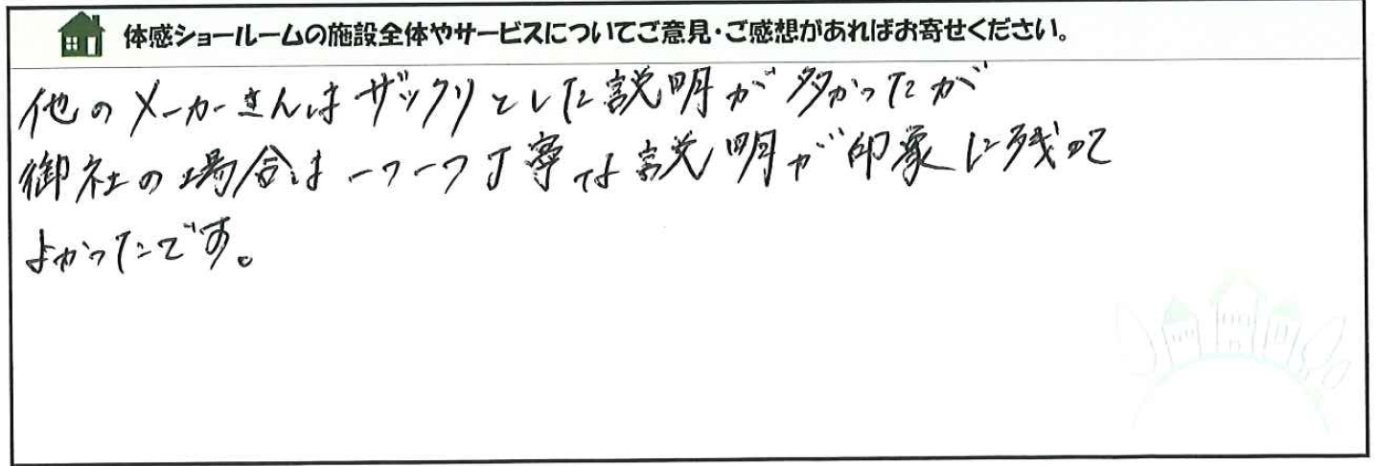 体感ショールームの施設全体やサービスについてご意見・ご感想があればお寄せください。
他のメーカーさんはザックリとした説明が多かったが
御社の場合は一つ一つ丁寧な説明が印象に残って
よかったです。